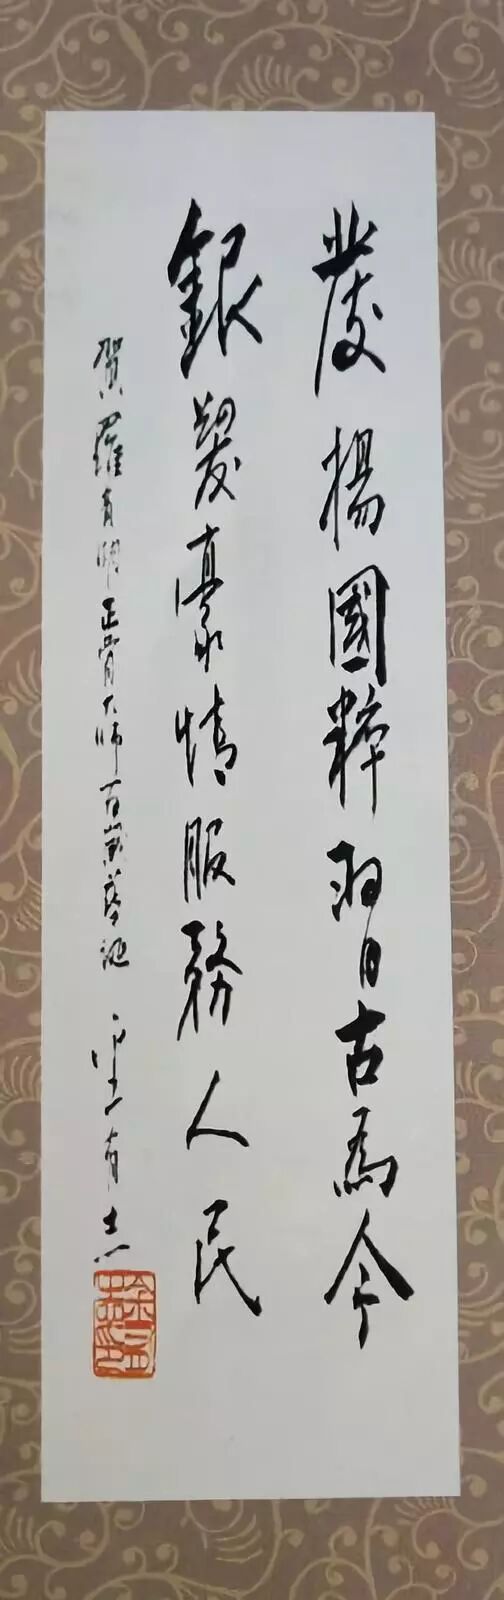 發揚國粹習古為今
銀髮豪情服務人民
賀羅有明正骨大師百歲華誕